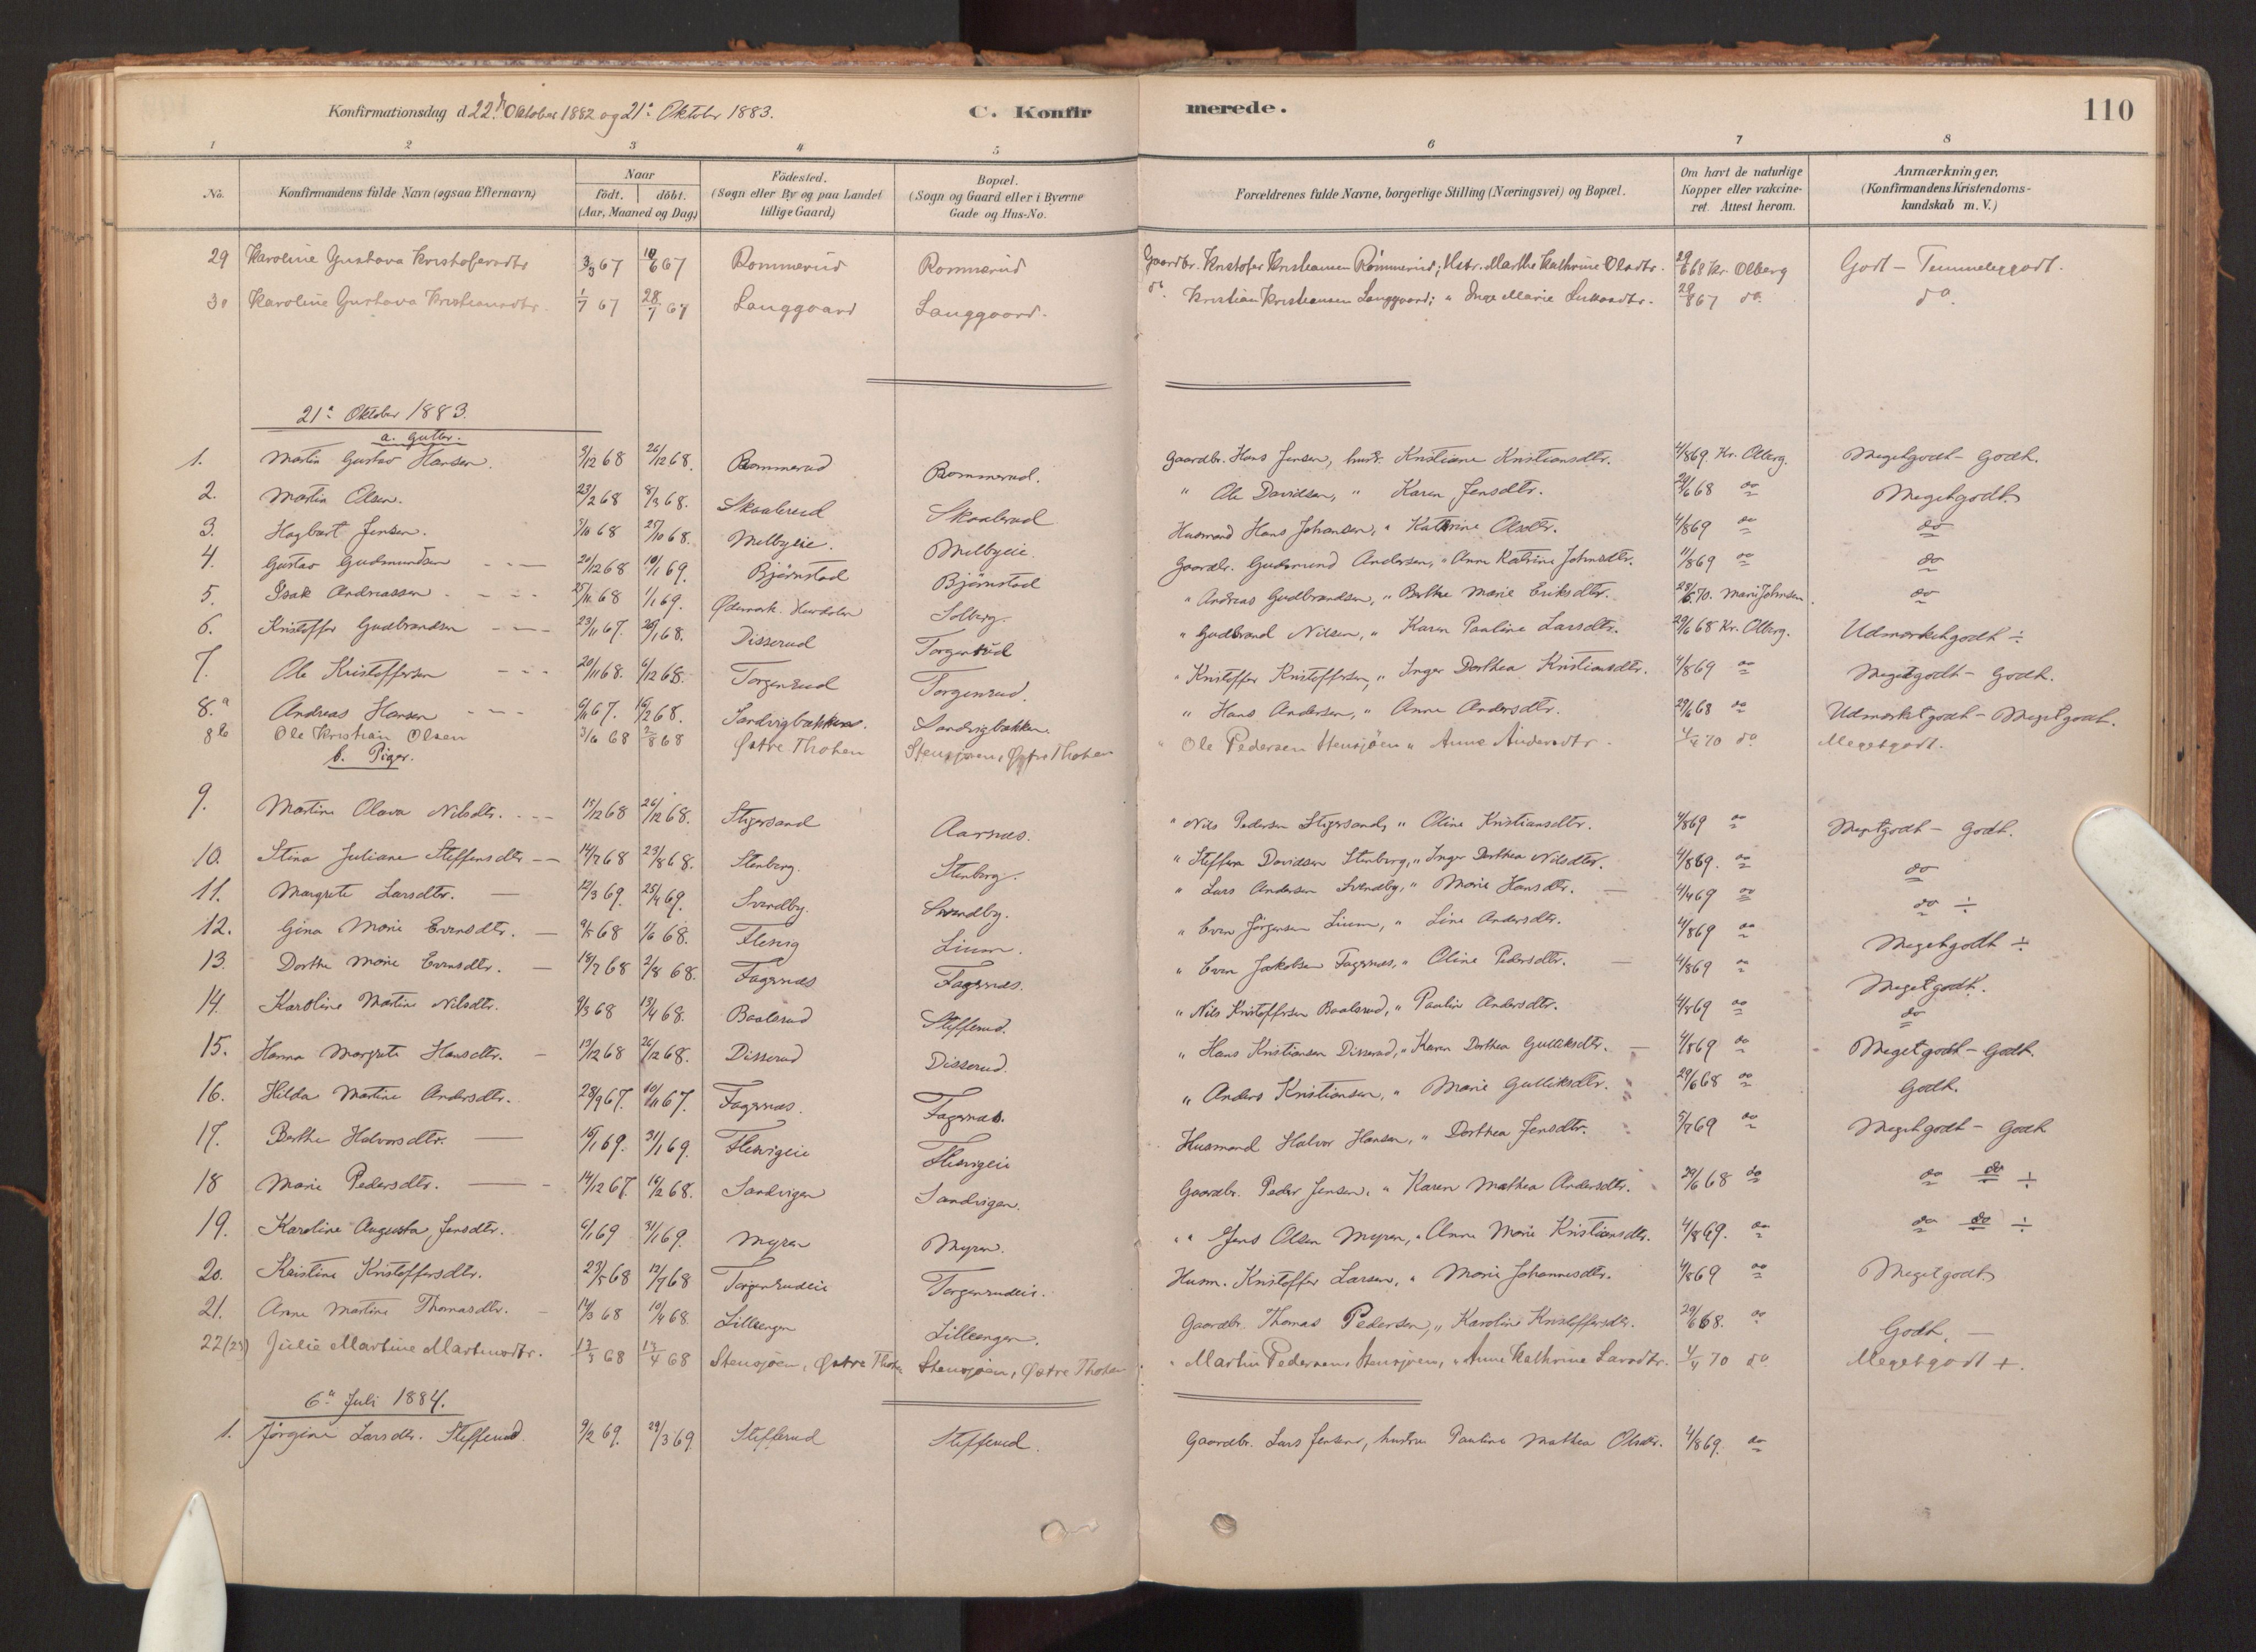 Konfirmationsdag d 22de Oktober 1882 og 21: Oktober 1883. C. Konfirmerede. 110
1 2 3 4 5 6 7 8
No. Konfirmandens fulde Navn (ogsaa Efternavn) Naar födt. döbt. (Aar, Maaned og Dag) Födested. (Sogn eller By og paa Landet tillige Gaard) Bopæl. (Sogn og Gaard eller i Byerne Gade og Hus-No. Forældrenes fulde Navne, borgerlige Stilling (Næringsvei) og Bopæl. Om havt de naturlige Kopper eller vakcineret. Attest herom. Anmærkninger. (Konfirmandens Kristendomskundskab m. V.)
29 Karoline Gustava Kristofersdtr 3/3 67 10/6 67 Rommerud Rommerud Gaardbr. Kristofer Kristiansen Rommerud; Hstr. Marthe Kathrine Olsdtr. 29/6 68 Kr. Olberg Godt - Temmeliggodt.
30 Karoline Gustava Kristiansdtr. 1/7 67 28/7 67 Langgaard Langgaard. do Kristian Kristiansen Langgaard; " Inge Marie Lukasdtr. 29/8 67 do. do.
21: Oktober 1883.
a. Gutter.
1. Martin Gustav Hansen. 9/12 68 26/12 68. Rommerud Rommerud. Gaardbr. Hans Jensen, hustr. Kristiane Kristiansdtr. 4/8 69 Kr. Olberg. Megetgodt - Godt.
2. Martin Olsen. 23/2 68 8/3 68. Skaalerud Skaalerud " Ole Davidsen, " Karen Jensdtr. 29/6 68 do Megetgodt
3. Hagbart Jensen. 1/10 68 25/10 68. Melbyeie. Melbyeie. Husmand Hans Johansen, " Katrine Olsdtr. 4/8 69 do do
4. Gustav Gudmundsen 20/12 68 10/1 69. Bjørnstad Bjørnstad Gaardbr. Gudmund Andersen, " Anne Katrine Johnsdtr. 11/8 69 do do
5. Isak Andreassen 25/11 68 1/1 69. Ødemark. Solberg. " Andreas Gudbrandsen, " Berthe Marie Eriksdtr. 28/6 70. Mari Johnsen. do
6. Kristoffer Gudbrandsen 23/11 67. 26/1 68. Disserud Torgenrud " Gudbrand Nilsen, " Karen Pauline Larsdtr. 29/6 68 Kr. Olberg. Udmerketgodt ÷
7. Ole Kristoffersen 20/11 68. 6/12 68. Torgenrud Torgenrud. " Kristoffer Kristoffersen, " Inger Dorthea Kristiansdtr. 4/8 69 do Megetgodt - Godt.
8.a Andreas Hansen 6/11 67. 16/2 68. Sandvigbakken. Sandvigbakken. " Hans Andersen, " Anne Andersdtr. 29/6 68 do Udmerketgodt - Megetgodt.
8b Ole Kristian Olsen 3/6 68 2/8 68 Østre Thohen Stensjøen, Østre Thohen " Ole Pedersen Stensjöen " Anne Andersdtr. 4/4 70 do Megetgodt.
b. Piger.
9. Martine Olava Nilsdtr. 15/12 68 26/12 68. Stigersand Aarnæs. " Nils Pedersen Stigersand, " Oline Kristiansdtr. 4/8 69 do Megetgodt - Godt.
10. Stina Juliane Steffensdtr 14/7 68 23/8 68. Stenberg. Stenberg. " Steffen Davidsen Stenberg, " Inger Dorthea Nilsdtr. 4/8 69. do do
11. Margrete Larsdtr. 12/3 69. 25/4 69. Svendby. Svendby. " Lars Andersen Svendby, " Marie Hansdtr. 4/4 69 do do ÷
12. Gina Marie Evensdtr. 9/5 68 1/6 68. Flesvig Lium. " Even Jörgensen Lium, " Line Andersdtr. 4/8 69 do Megetgodt ÷
13. Dorthe Marie Evensdtr. 18/7 68 2/8 68. Fagernæs Fagernæs. " Even Jakobsen Fagernæs, " Oline Pedersdtr. 4/8 69 do Megetgodt.
14. Karoline Martine Nilsdtr. 9/3 68 13/4 68. Baalerud Stefferud. " Nils Kristoffersen Baalerud, " Pauline Andersdtr. 4/8 69 do do
15. Hanna Margrete Hansdtr. 19/12 68 26/12 68. Disserud Disserud. " Hans Kristiansen Disserud, " Karen Dorthea Gulliksdtr. 4/8 69 do Megetgodt - Godt.
16. Hilda Martine Andersdtr. 28/9 67. 10/11 67. Fagernæs. Fagernæs. " Anders Kristiansen, " Marie Gulliksdtr. 29/6 68 do Godt.
17. Berthe Halvorsdtr. 15/1 69. 31/1 69. Flesvigeie Flesvigeie Husmand Halvor Hansen, " Dorthea Jensdtr. 5/7 69 do Megetgodt - Godt
18 Marie Pedersdtr. 14/12 67. 16/2 68. Sandvigen Sandvigen. Gaardbr. Peder Jensen, " Karen Mathea Andersdtr. 29/6 68 do do do ÷
19. Karoline Augusta Jensdtr. 6/1 69 31/1 69. Myren Myren. " " Jens Olsen Myren, " Anne Marie Kristiansdtr. 4/8 69. do do do ÷
20. Kristine Kristoffersdtr. 23/5 68 12/7 68 Torgenrudeie Torgenrudeie. Husm. Kristoffer Larsen, " Marie Johannesdtr. 4/8 69 do Megetgodt
21. Anne Martine Thomasdtr. 14/3 68 10/4 68 Lilleengen Lilleengen. Gaardbr. Thomas Pedersen, " Karoline Kristoffersdtr. 29/6 68. do Godt. -
22(23) Julie Martine Martinsdtr. 12/3 68 13/4 68 Stensjøen, Østre Thohen Stensjøen, Østre Thohen " Martin Pedersen Stensjøen, " Anne Kathrine Larsdtr. 4/4 70 do. Megetgodt +.
6: Juli 1884.
1. Jørgine Larsdtr. Stefferud. 9/2 69. 29/3 69 Stefferud Stefferud. Gaardbr. Lars Jensen, hustru Pauline Mathea Olsdtr. 4/8 69. do